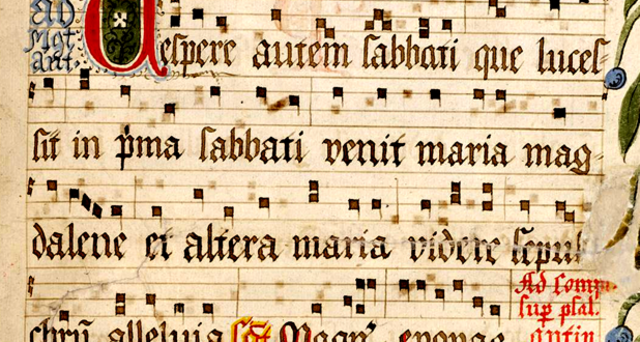 ad
Mat
ant.
Vespere autem sabbati que luces-
sit in pma sabbati venit maria mag-
dalene et altera maria videre sepul-
Ad Comp
sup psal.
chrū alleluia
antin